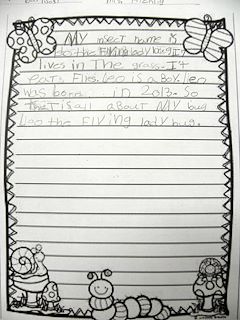 My insect name is
do the Flying lady bug. It
lives in The grass. It
eats Flies. leo is a boy. leo
was born... in 2013. So
that is all about My bug
Leo the Flying lady bug.